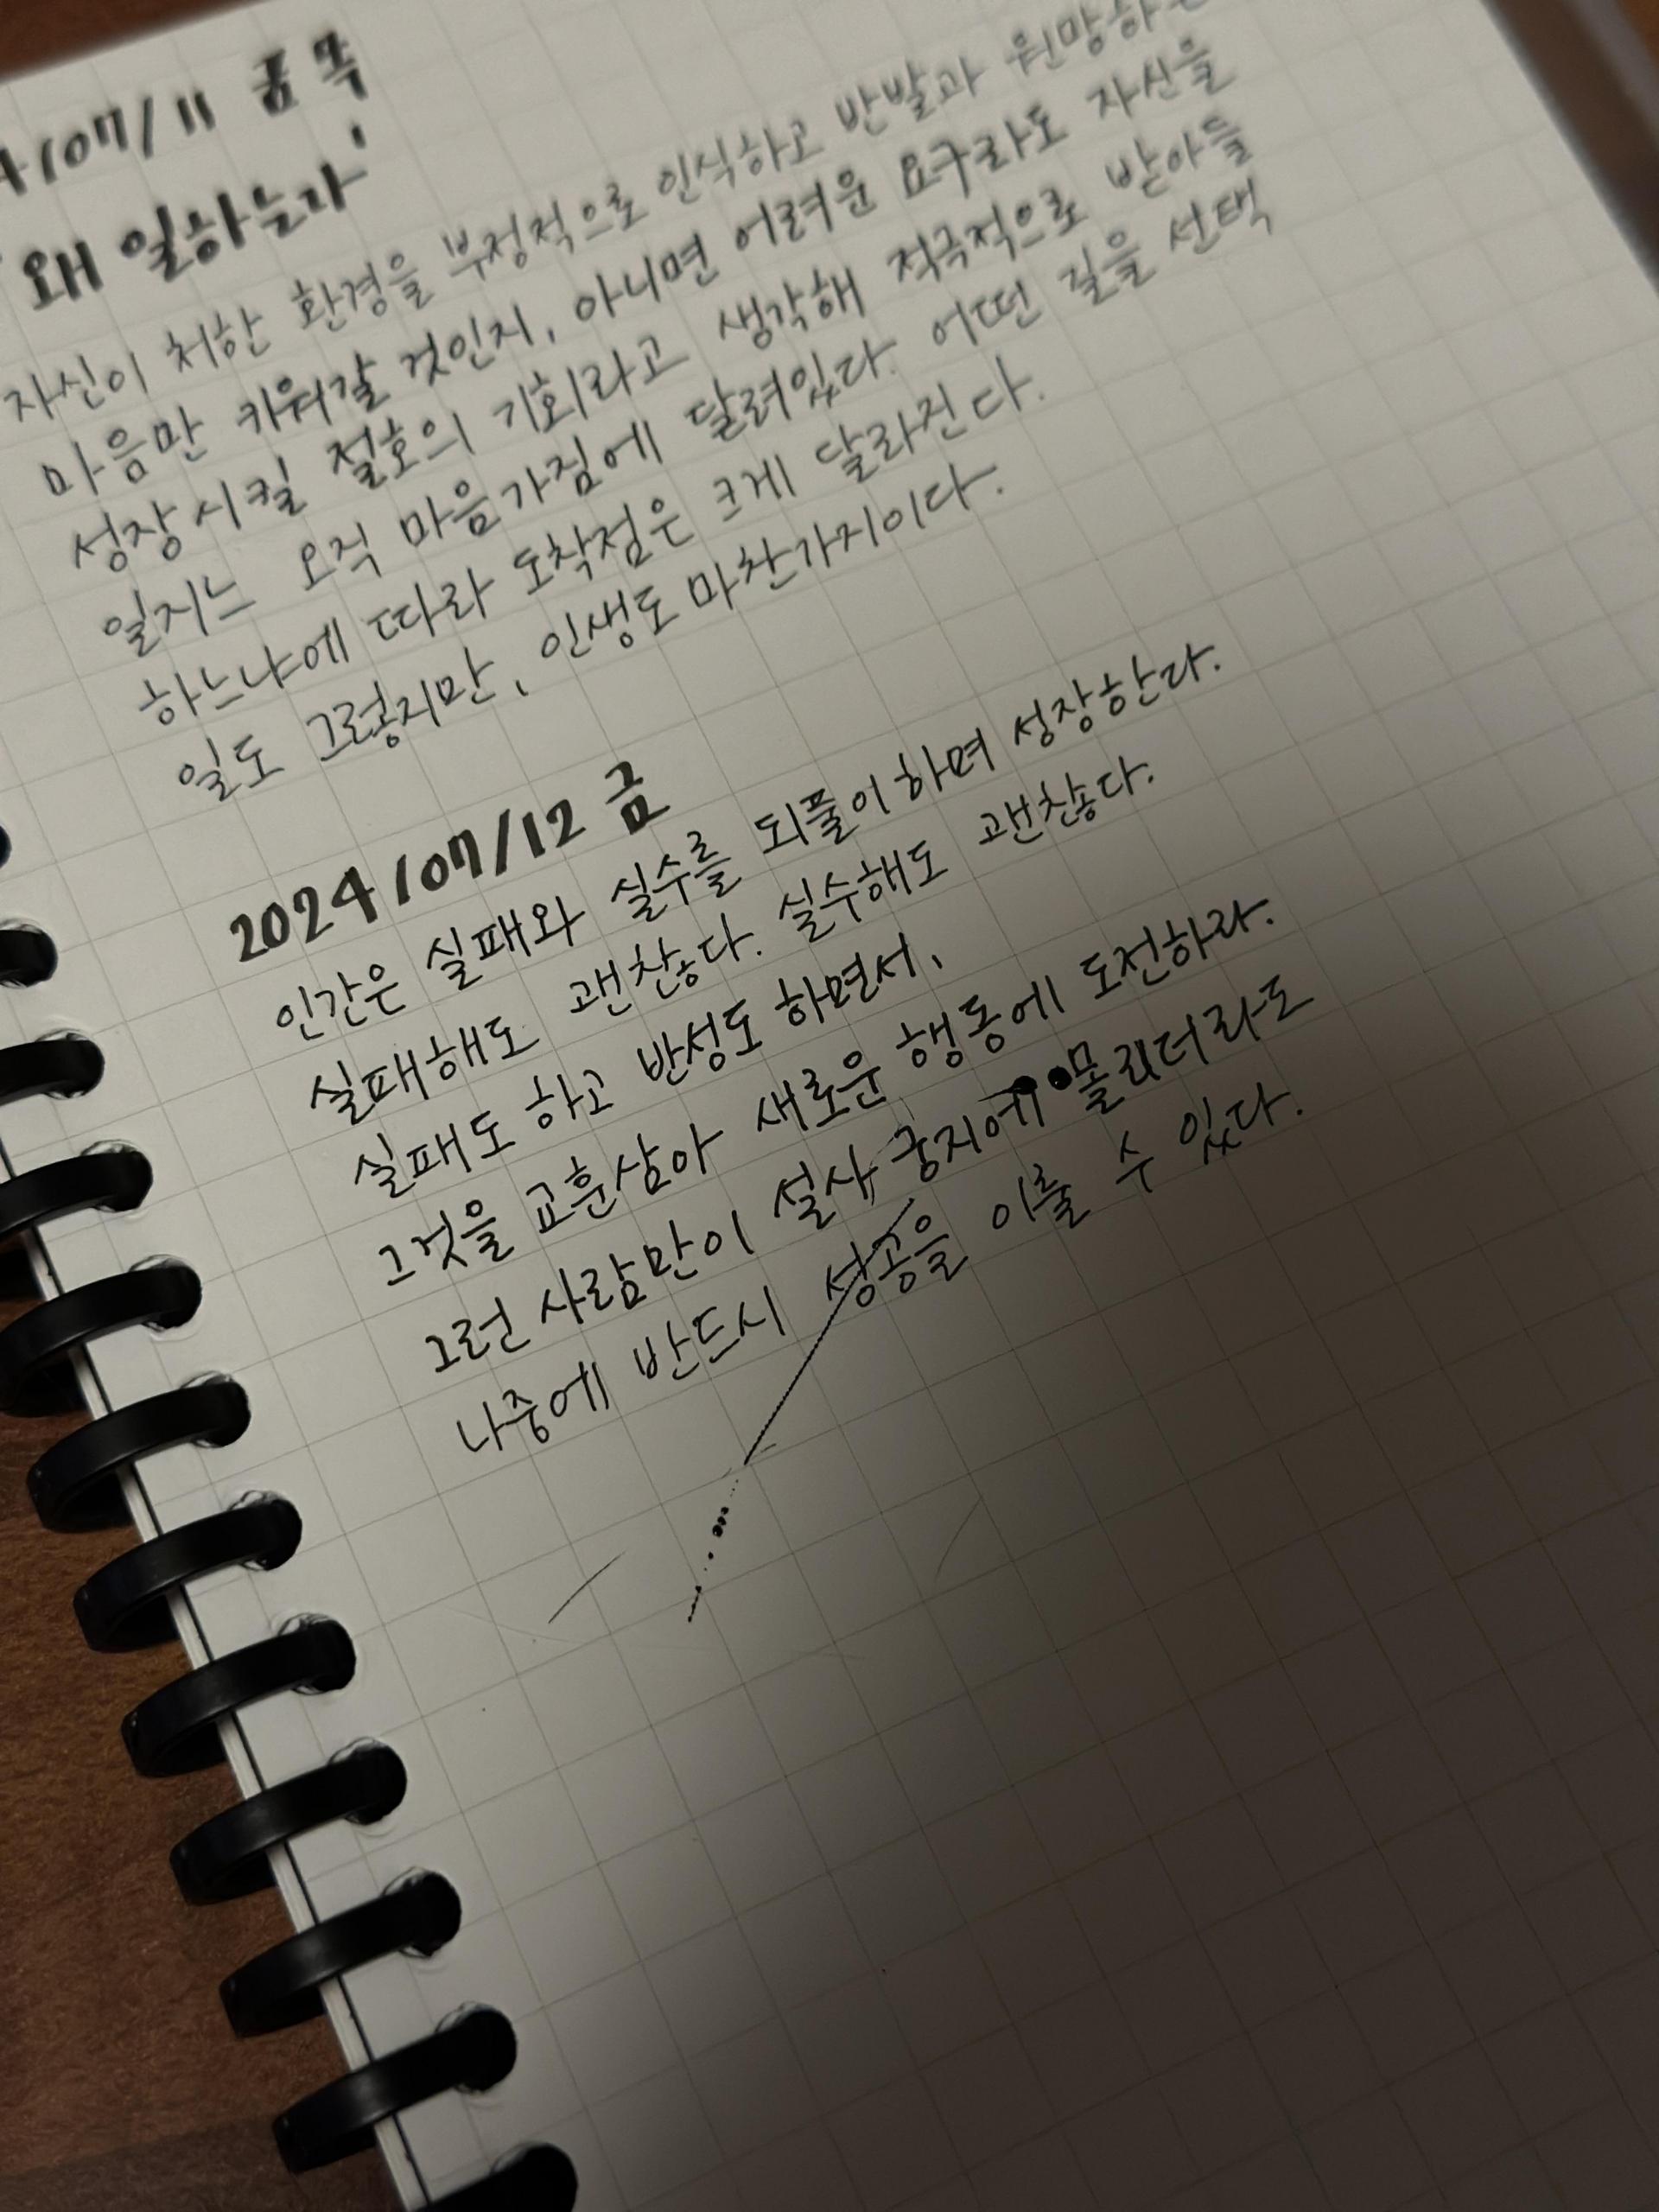 4/07/11 목
'왜 일하는가'
자신이 처한 환경을 부정적으로 인식하고 반발과 원망하는
마음만 키워갈 것인지, 아니면 어려운 요구라도 자신을
성장시킬 절호의 기회라고 생각해 적극적으로 받아들
일지느 오직 마음가짐에 달려있다. 어떤 길을 선택
하느냐에 따라 도착점은 크게 달라진다.
일도 그렇지만, 인생도 마찬가지이다.
2024/07/12 금
인간은 실패와 실수를 되풀이하며 성장한다.
실패해도 괜찮다. 실수해도 괜찮다.
실패도 하고 반성도 하면서,
그것을 교훈삼아 새로운 행동에 도전하라.
그런 사람만이 설사 궁지에 몰리더라도
나중에 반드시 성공을 이룰 수 있다.